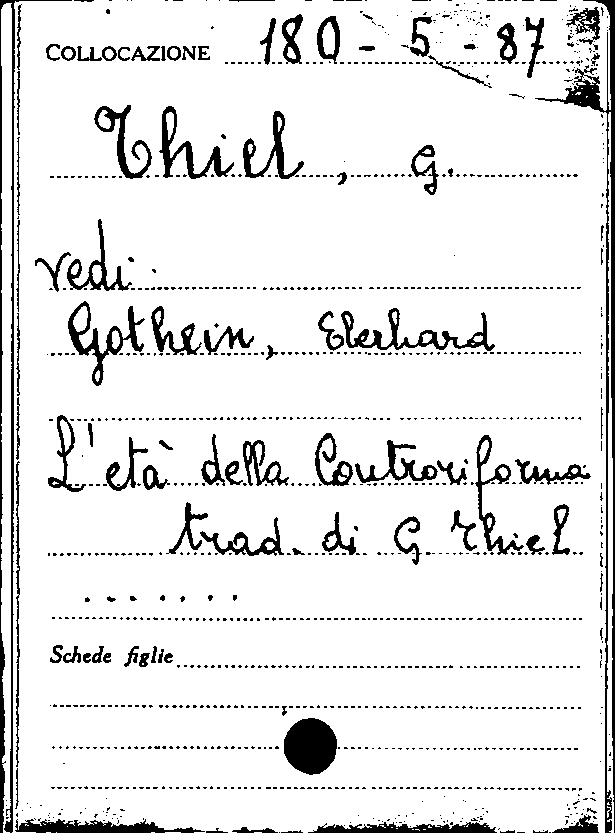 COLLOCAZIONE 180 - 5 - 87
Thiel, G.
vedi
Gothein, Eberhard
L'età della Controriforma
trad. di G. Thiel
. . . . . . .
Schede figlie